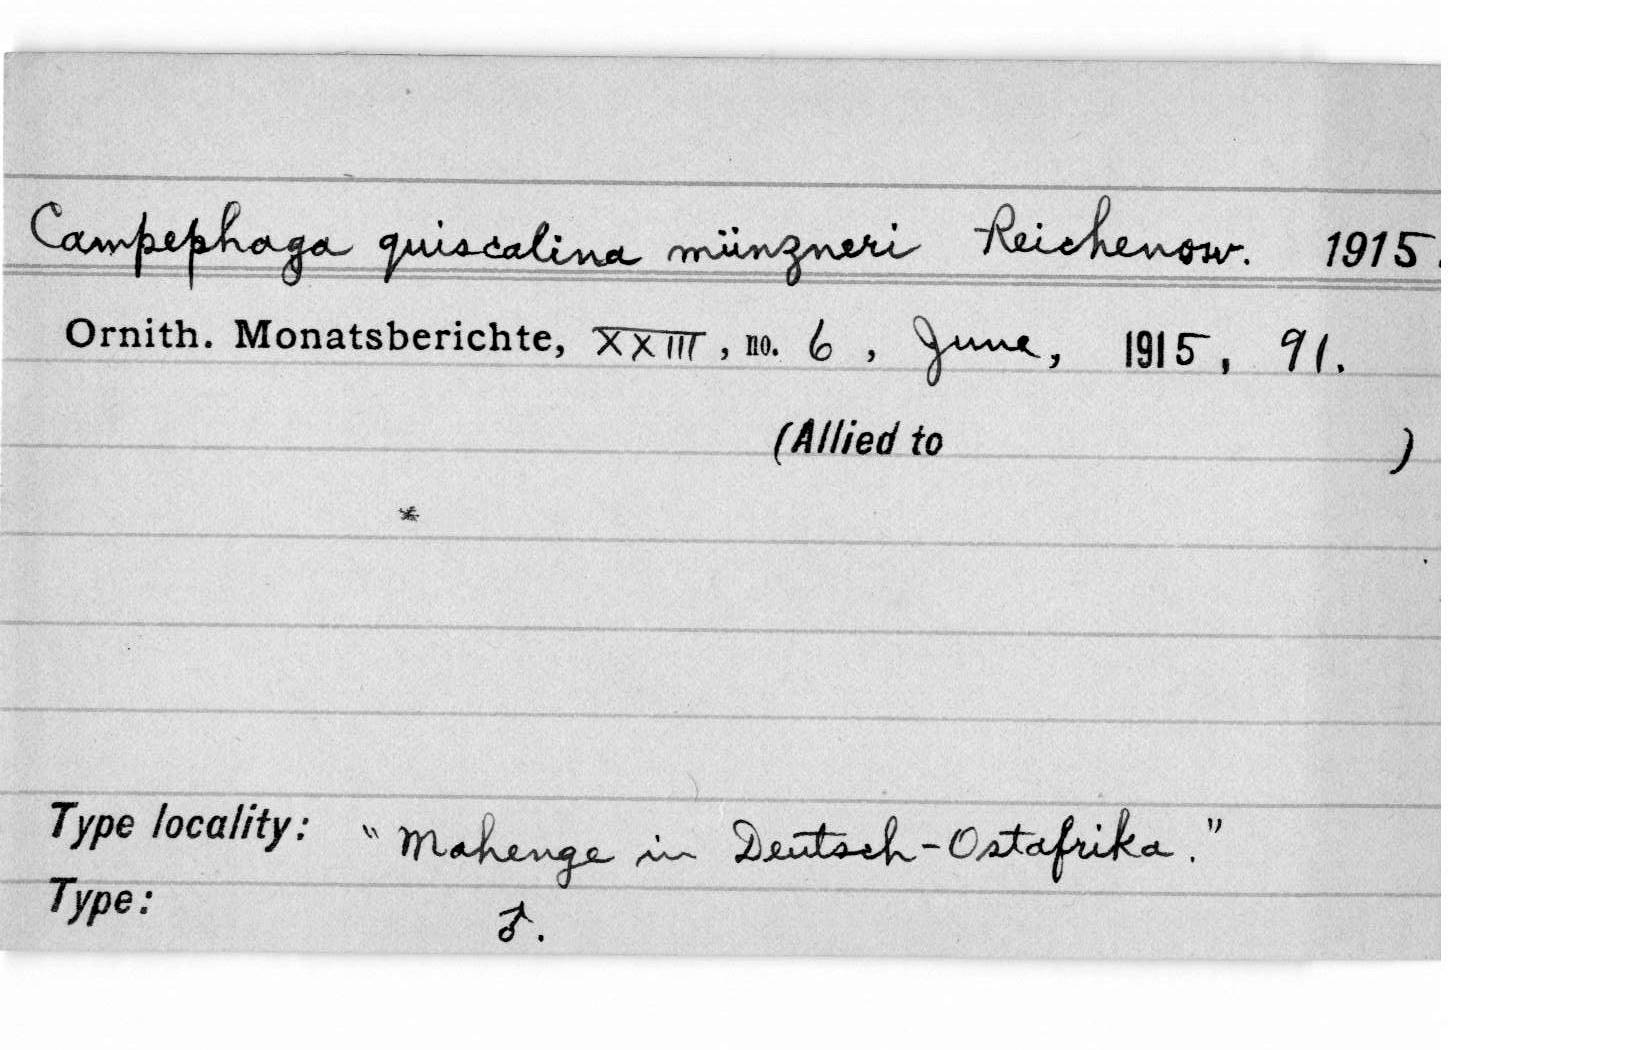 Campephaga quiscalina münzneri Reichenow. 1915.
Ornith. Monatsberichte, XXIII, no. 6, June, 1915, 91.
(Allied to )
*
Type locality: "Mahenge in Deutsch-Ostafrika."
Type: ♂.